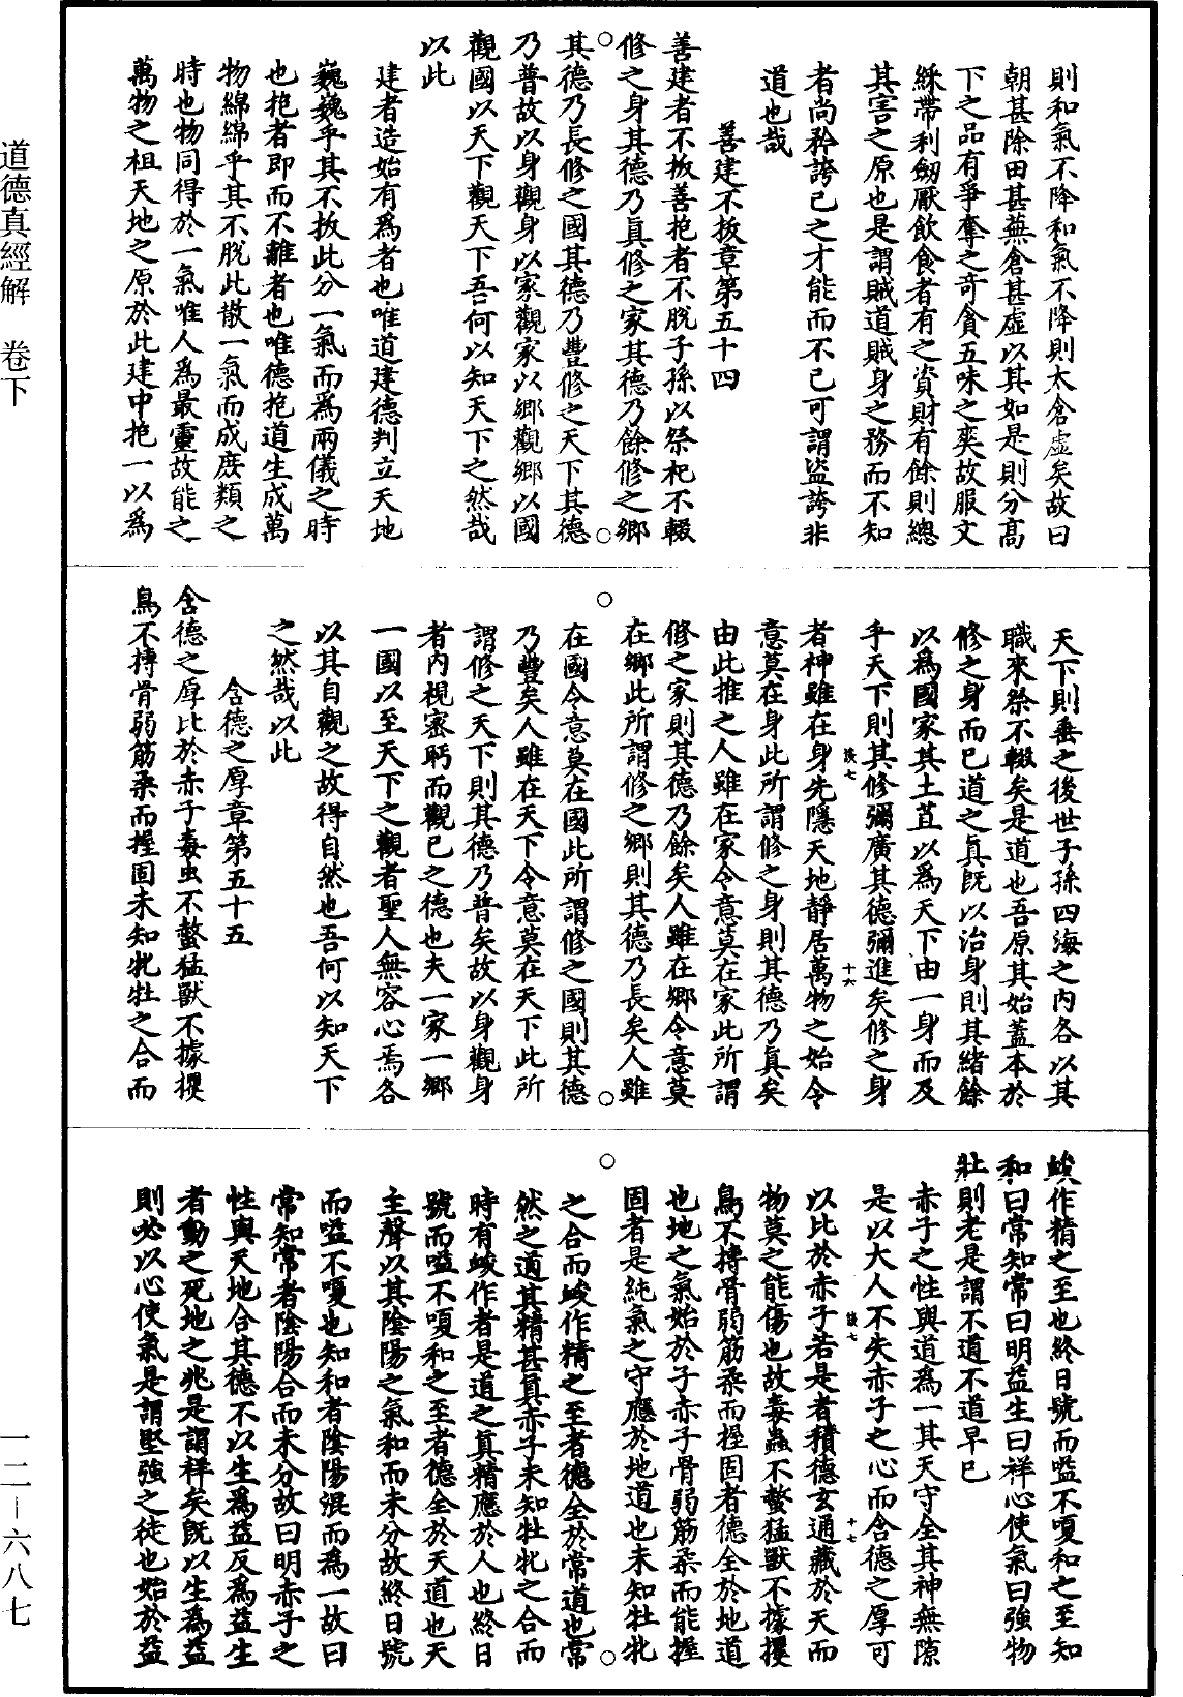 道德真經解 卷下
一二－六八七
則和氣不降和氣不降則太倉虛矣故曰
朝甚除田甚蕪倉甚虛以其如是則分高
下之品有爭奪之奇貪五味之爽故服文
綵帶利劒厭飲食者有之資財有餘則總
其害之原也是謂賊道賊身之務而不知
者尚矜誇己之才能而不已可謂盜誇非
道也哉
善建不拔章第五十四
善建者不拔善抱者不脫子孫以祭祀不輟
修之身其德乃真修之家其德乃餘修之鄉
其德乃長修之國其德乃豐修之天下其德
乃普故以身觀身以家觀家以鄉觀鄉以國
觀國以天下觀天下吾何以知天下之然哉
以此
建者造始有爲者也唯道建德判立天地
巍巍乎其不拔此分一氣而爲兩儀之時
也抱者即而不離者也唯德抱道生成萬
物綿綿乎其不脫此散一氣而成庶類之
時也物同得於一氣唯人爲最靈故能之
萬物之祖天地之原於此建中抱一以爲
天下則垂之後世子孫四海之內各以其
職來祭不輟矣是道也吾原其始蓋本於
修之身而已道之真既以治身則其緒餘
以爲國家其土苴以爲天下由一身而及
乎天下則其修彌廣其德彌進矣修之身
談七
十六
者神雖在身先隱天地靜居萬物之始令
意莫在身此所謂修之身則其德乃真矣
由此推之人雖在家令意莫在家此所謂
修之家則其德乃餘矣人雖在鄉令意莫
在鄉此所謂修之鄉則其德乃長矣人雖
在國令意莫在國此所謂修之國則其德
乃豐矣人雖在天下令意莫在天下此所
謂修之天下則其德乃普矣故以身觀身
者內視密眄而觀己之德也夫一家一鄉
一國以至天下之觀者聖人無容心焉各
以其自觀之故得自然也吾何以知天下
之然哉以此
含德之厚章第五十五
含德之厚比於赤子毒虫不螫猛獸不據攫
鳥不摶骨弱筋柔而握固未知牝牡之合而
峻作精之至也終日號而嗌不嗄和之至知
和曰常知常曰明益生曰祥心使氣曰強物
壯則老是謂不道不道早已
赤子之性與道爲一其天守全其神無隙
是以大人不失赤子之心而含德之厚可
談七
十七
以比於赤子若是者積德玄通藏於天而
物莫之能傷也故毒蟲不螫猛獸不據攫
鳥不摶骨弱筋柔而握固者德全於地道
也地之氣始於子赤子骨弱筋柔而能握
固者是純氣之守應於地道也未知牡牝
之合而峻作精之至者德全於常道也常
然之道其精甚真赤子未知牡牝之合而
時有峻作者是道之真精應於人也終日
號而嗌不嗄和之至者德全於天道也天
主聲以其陰陽之氣和而未分故終日號
而嗌不嗄也知和者陰陽混而爲一故曰
常知常者陰陽合而未分故曰明赤子之
性與天地合其德不以生爲益反爲益生
者動之死地之兆是謂祥矣既以生爲益
則必以心使氣是謂堅強之徒也始於益